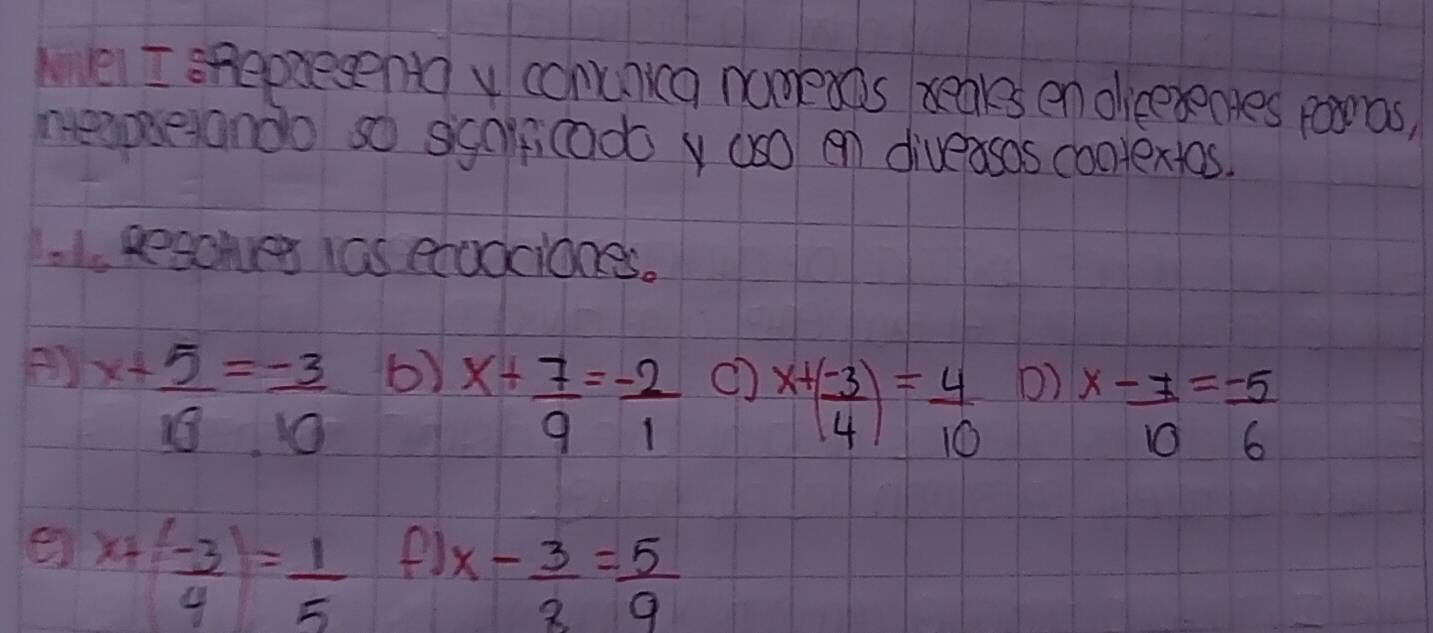 Nivel I: Representa y comunica numeros reales en diferentes formas,
interpretando so significado y uso en diversos contextos.
1.1. Resolver las ecuaciones.
A) x + 5/18 = -3/10 b) x + 7/9 = -2/1 c) x + (-3/4) = 4/10 D) x - 7/10 = -5/6
e) x + (-3/4) = 1/5 f) x - 3/2 = 5/9